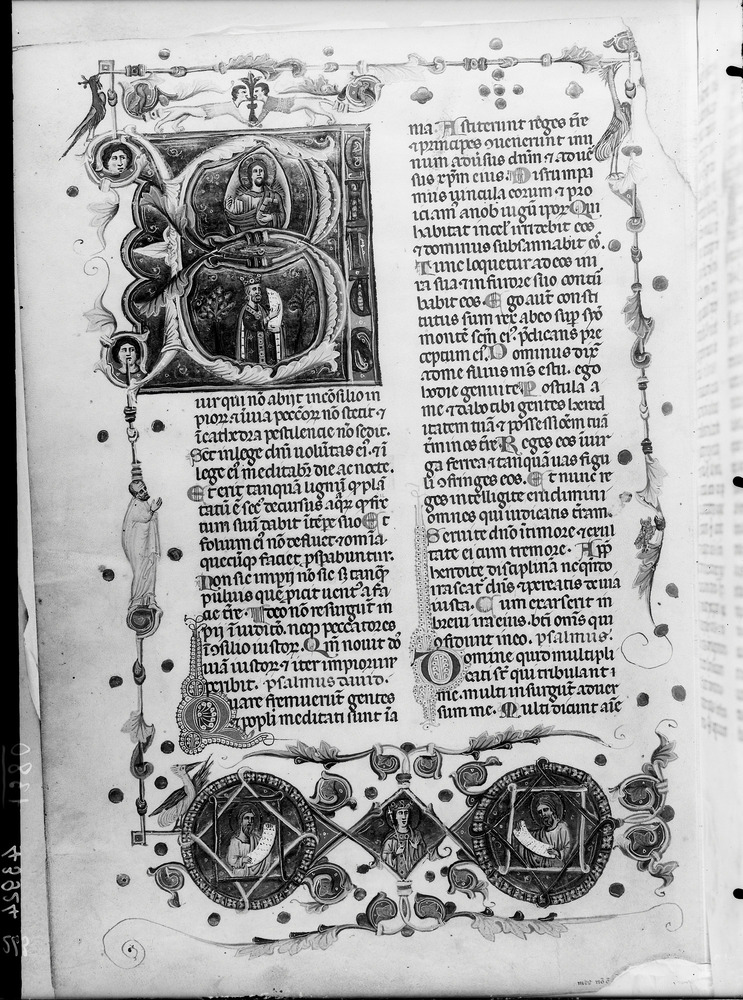 B
iur qui nō abijt īcōsilio im
pior⁊ ⁊ ī uia pecc̄or⁊ nō stetit ⁊
ī cathedra pestilencie nō sedit.
Set in lege dñi uolūtas ei⁹ ⁊ ī
lege ei⁹ meditabit̄ die ac nocte.
Et erit tanquā lignū qd̄ plā
tatū ē sec⁹ decursus aq̄r⁊ qd̄ fr̄c
tum suū dabit ī tēpe suo Et
folium ei⁹ nō defluet ⁊ om̄ia
quecūq̄ faciet prospabuntur.
Non sic impij nō sic s⁊ tanq̄
puluis que proicit uent⁹ a fa
cie tr̄e. Ideo nō resurgūt in
pij ī iuditō neq̄ peccatores
ī cōsilio iustor⁊. Qm̄ nouit dō
uiā iustor⁊ ⁊ iter impiorum
peribit. psalmus dauid.
Quare fremuerūt gentes
⁊ popli meditati sunt īa
nia. Astiterunt reges tr̄e
⁊ principes ⁊uenerunt in u
num adūsus dn̄m ⁊ aduē
sus xp̄m eius. Disrumpa
mus uincula eorum ⁊ pro
iciam⁹ a nob iugū ipor⁊ Qui
habitat in cel⁹ irridebit eos
⁊ dominus subsannabit eō.
Tunc loquetur ad eos in i
ra sua ⁊ in furore suo contū
babit eos Ego aut̄ consti
tutus sum rex ab eo sup syō
montē scm̄ ei⁹ p̄dicans pre
ceptum ei⁹. Dominus dix̄
ad me filius m̄s es tu. ego
hodie genui te Postula a
me ⁊ dabo tibi gentes hered
itatem tuā ⁊ possessiōem tuā
tm̄inos tr̄e Reges eos ī uir
ga ferrea ⁊ tanquā uas figu
li ⁊fringes eos. Et nunc re
ges intelligite erudimini
omnes qui iudicatis tr̄am.
Seruite dnō ī timore ⁊ exul
tate ei cum tremore. App
hendite disciplinā nequādo
irascat̄ dn̄s ⁊ pereatis de uia
iusta. Cum exarserit in
breui ira eius. bt̄i om̄s qui
cōfidunt in eo. psalmus.
Domine quid multipli
cati st̄ qui tribulant ī
me. multi insurgūt aduer
sum me. Multi dicunt aīe